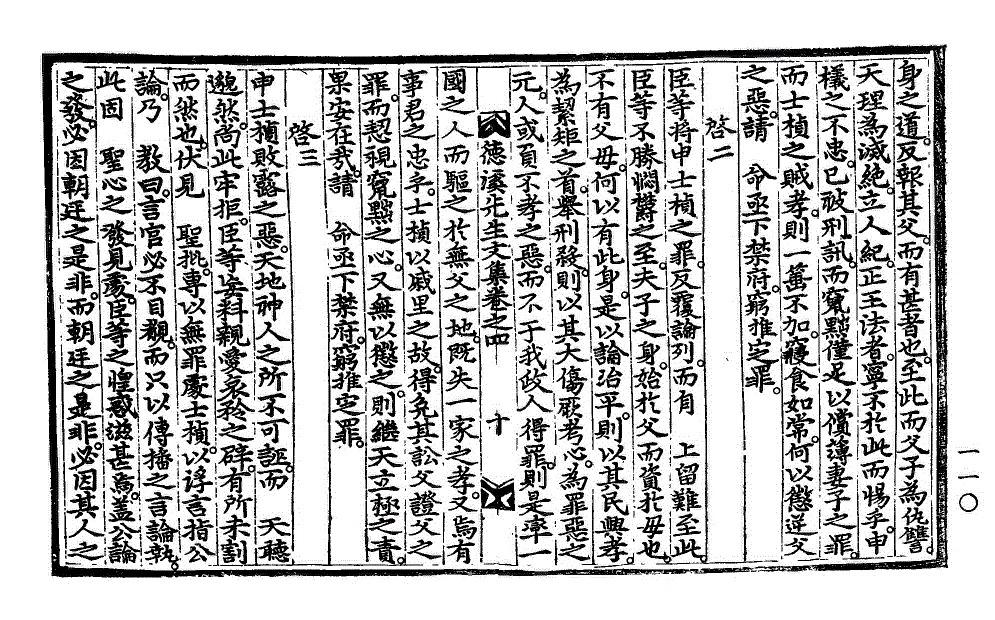 身之道反報其父而有甚者也至此而父子為仇讐
天理為滅絶立人紀正王法者寧不於此而惕乎申
檥之不忠已被刑訊而竄黜僅足以償薄妻子之罪
而士楨之賊孝則一箠不加寢食如常何以懲逆父
之惡請 命亟下禁府窮推定罪
啓二
臣等將申士楨之罪反覆論列而有 上留難至此
臣等不勝悶欝之至夫子之身始於父而資於母也
不有父母何以有此身是以論治平則以其民興孝
為絜矩之首舉刑發則以其大傷厥考心為罪惡之
元人或負不孝之惡而不于我政人得罪則是率一
國之人而驅之於無父之地既失一家之孝又焉有
事君之忠乎士楨以戚里之故得免其訟父證父之
罪而恝視竄黜之心又無以懲之則繼天立極之責
果安在哉請 命亟下禁府窮推定罪
啓三
申士楨敗露之惡天地神人之所不可誣而 天聽
邈然尚此牢拒臣等妄料親愛哀矜之辟有所未割
而然也伏見 聖批專以無罪處士楨以浮言指公
論乃 教曰言官必不目覩而只以傳播之言論執
此固 聖心之發見處臣等之惶惑滋甚焉盖公論
之發必因朝廷之是非而朝廷之是非必因其人之
德溪先生文集卷之四 十
一一〇